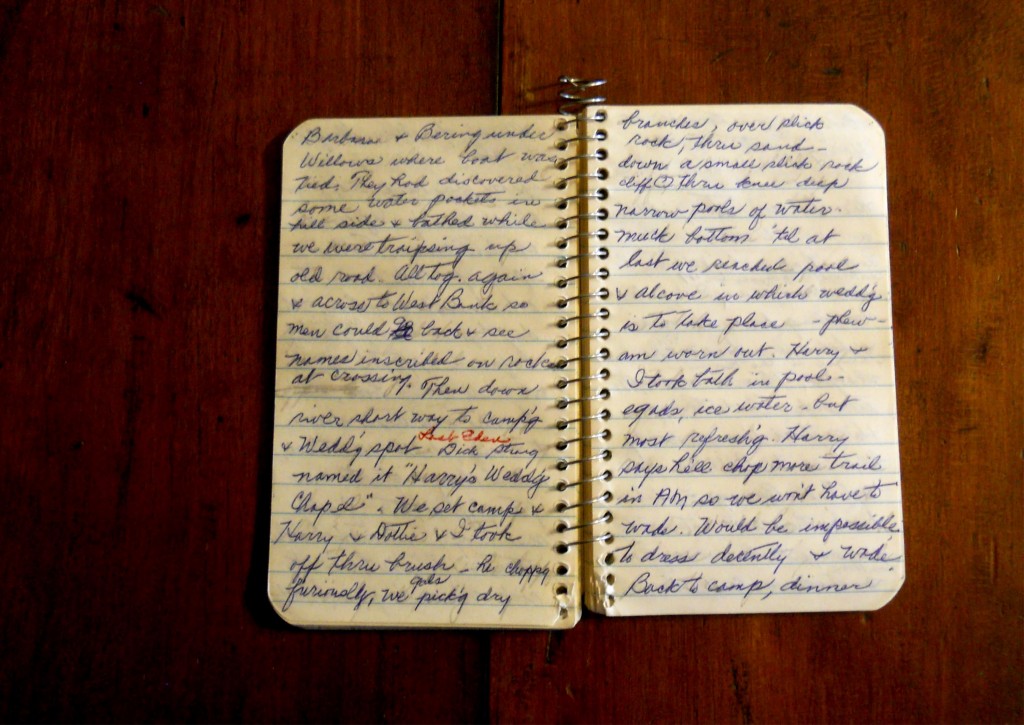 Barbara & Bering under
Willows where boat was
tied. They had discovered
some water pockets in
hill side & bathed while
we were traipsing up
old road. All tog. again
& across to West Bank so
men could go back & see
names inscribed on rocks
at crossing. Then down
river short way to camp'g
& Wedd'g spot. Dick
Lost Eden
named it "Harry's Wedd'g
Chapel". We set camp &
Harry & Dottie & I took
off thru brush - he chopp'g
furiously, we gals pick'g dry
branches, over slick
rock, thru sand -
down a small slick rock
cliff & thru knee deep
narrow pools of water.
Muck bottom 'til at
last we reached pool
& alcove in which wedd'g
is to take place - phew -
am worn out. Harry &
I took bath in pool -
egads, ice water - but
most refresh'g. Harry
says he'll chop more trail
in AM so we won't have to
wade. Would be impossible
to dress decently & wade.
Back to camp, dinner